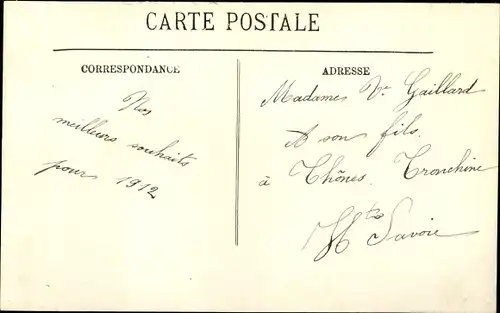 CARTE POSTALE
CORRESPONDANCE
ADRESSE
Nos
meilleurs souhaits
pour 1912
Madame Vve Gaillard
& son fils.
à Thônes. Tronchine
Hte Savoie